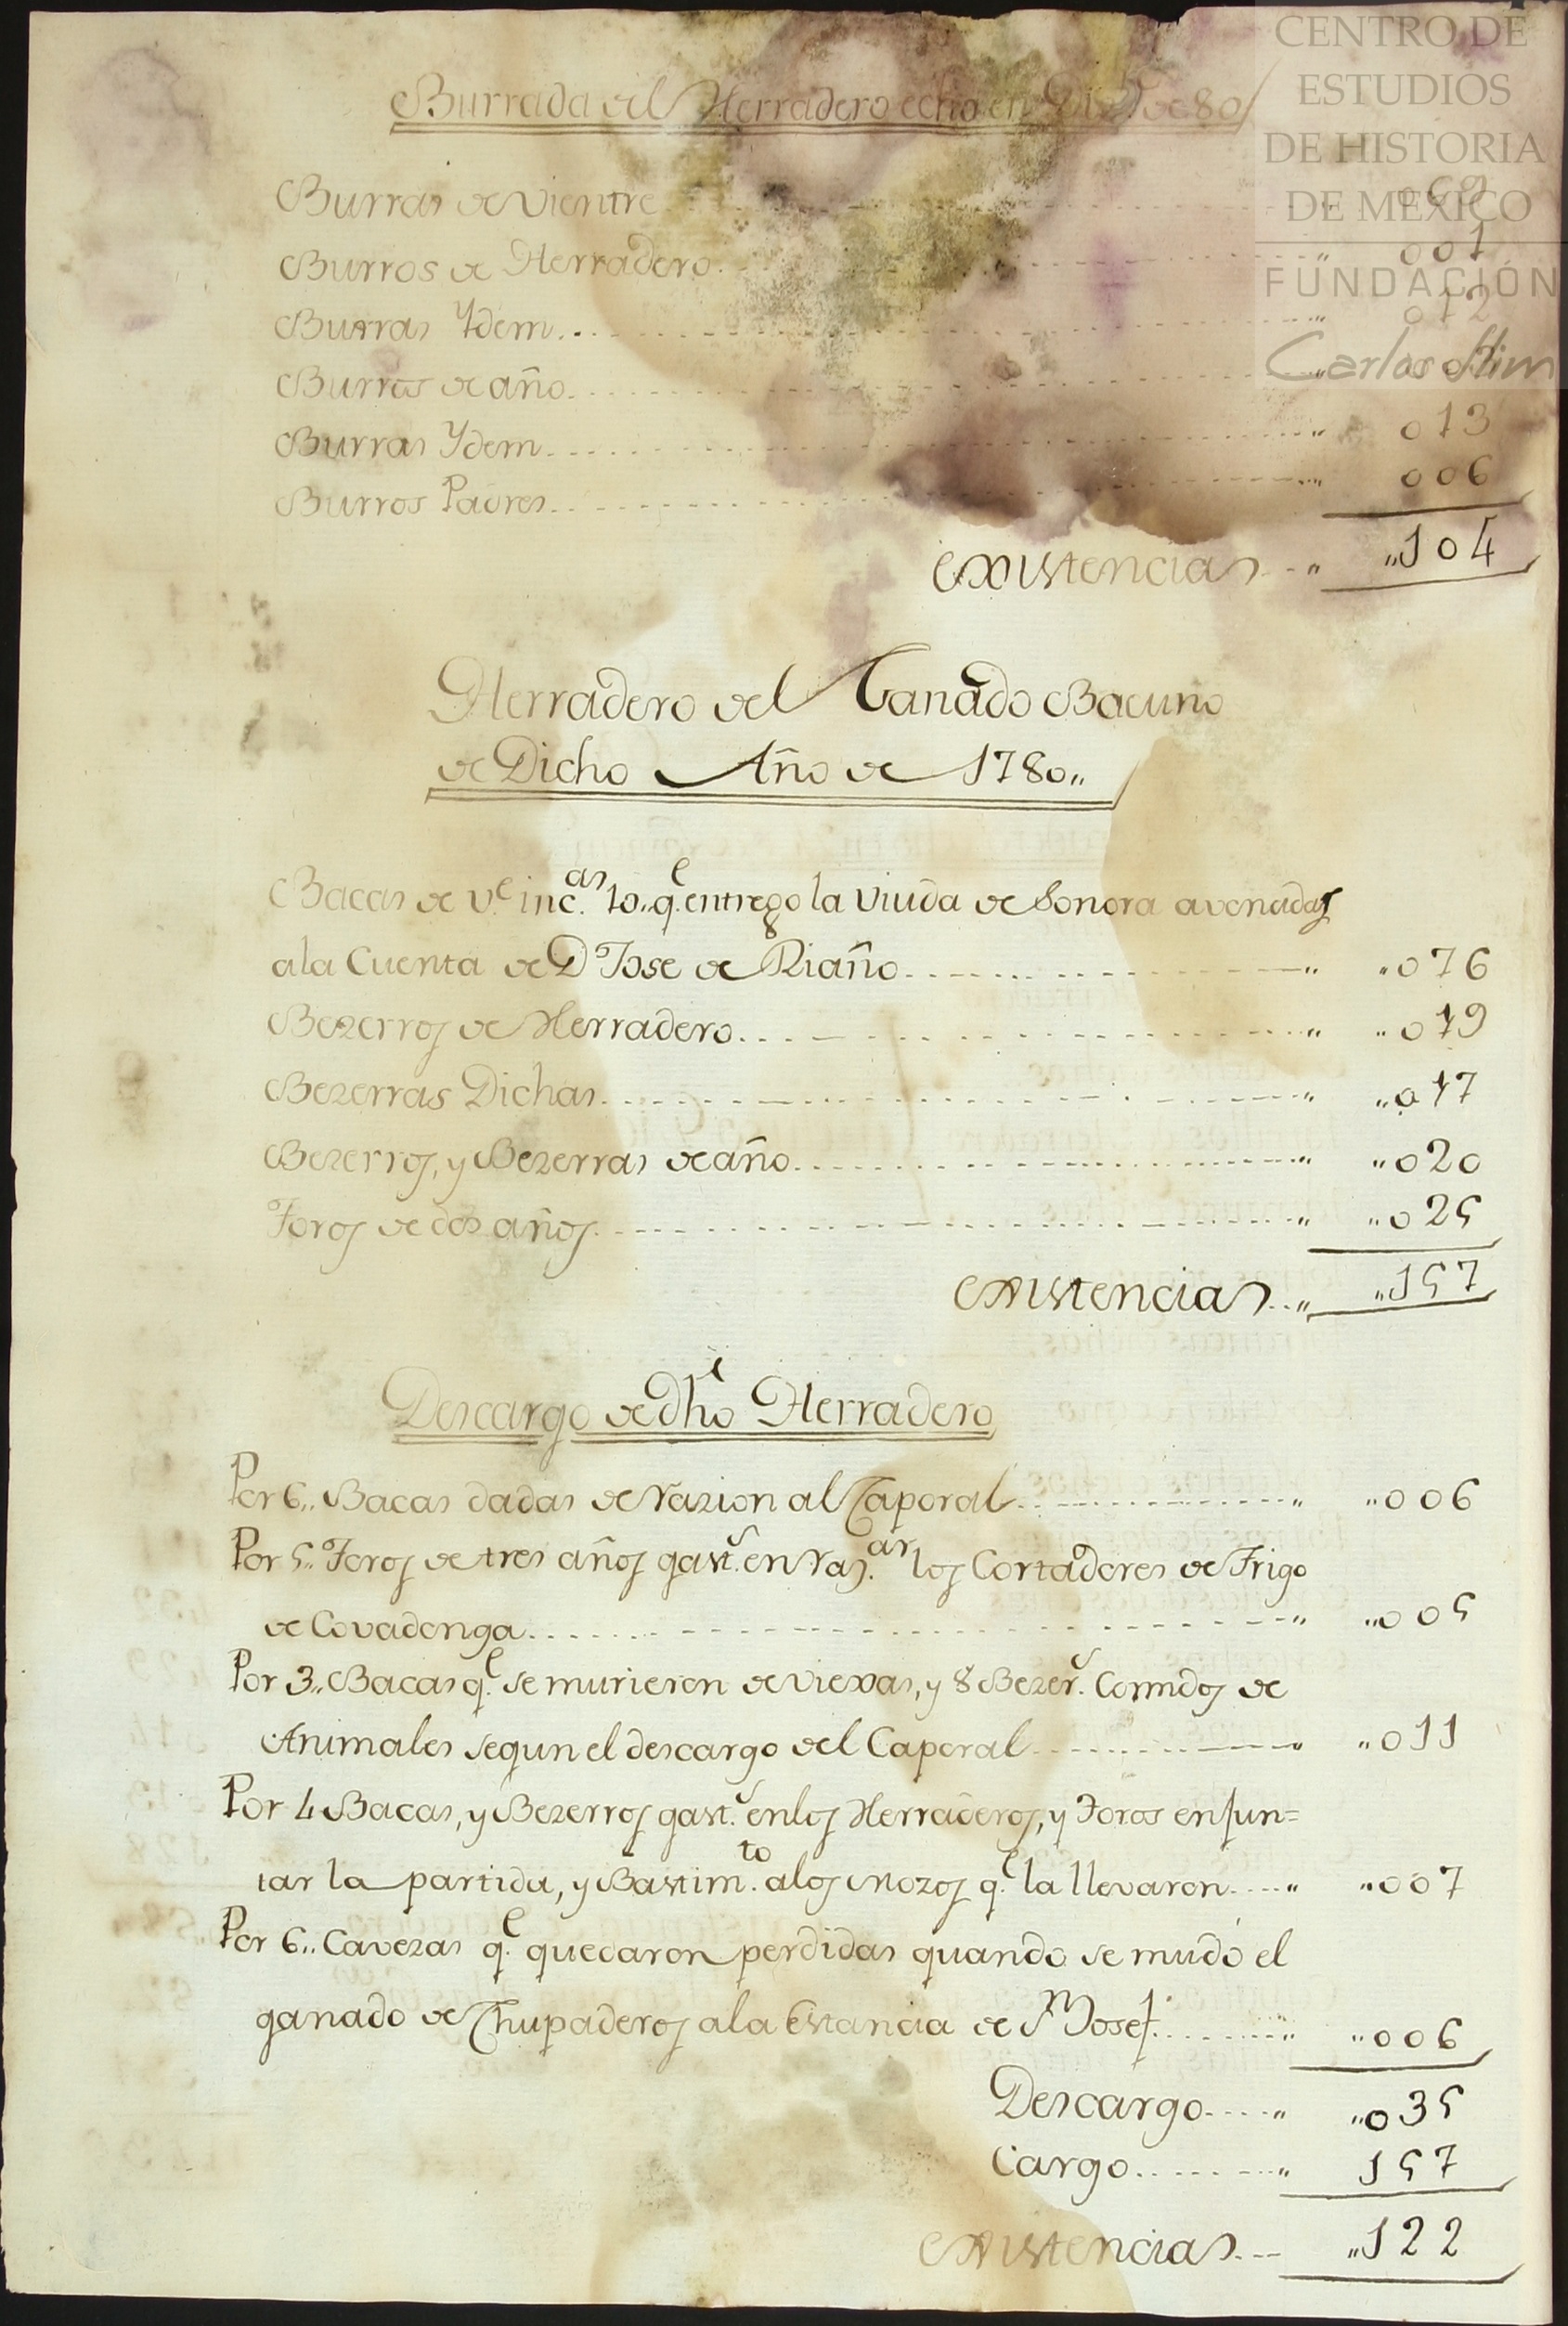 CENTRO DE
ESTUDIOS
DE HISTORIA
DE MEXICO
FUNDACIÓN
Carlos Slim
Burrada del Herradero echo en de 80
Burras de vientre 069
Burros de Herradero 001
Burras Ydem 012
Burros de año
Burras Ydem 013
Burros Padres 006
existencias 104
Herradero del Ganado Bacuno
de Dicho Año de 1780
Bacas de v.e inc.as 10 q.e entrego la Viuda de Sonora avenidas
a la Cuenta de D Jose de Riaño 076
Bezerros de Herradero 019
Bezerras Dichas 017
Bezerros, y Bezerras de año 020
Toros de dos años 025
existencias 157
Descargo de Dho Herradero
Por 6 Bacas dadas de razion al Caporal 006
Por 5 Toros de tres años gast.s en raz.ar los Cortadores de Trigo
de Covadonga 005
Por 3 Bacas q.e se murieron de viexas, y 8 Bezer.s Comidos de
Animales segun el descargo del Caporal 011
Por 4 Bacas, y Bezerros gast.s en los Herraderos, y Toros en jun=
tar la partida, y Bastim.to a los mozos q.e la llevaron 007
Por 6 Cavezas q.e quedaron perdidas quando se mudó el
ganado de Chupaderos a la Estancia de S.n Josef 006
Descargo 035
Cargo 157
existencias 122